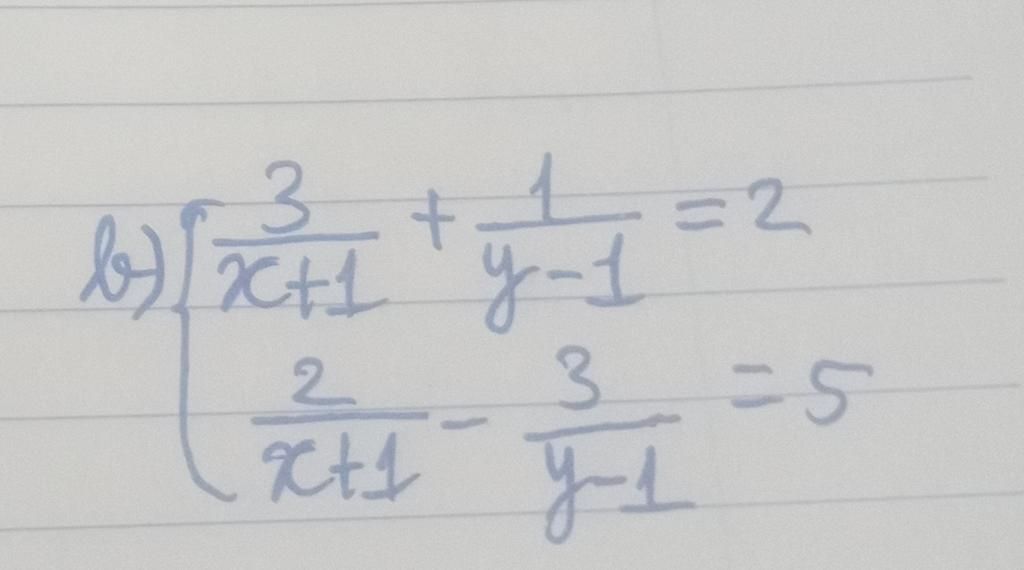 b) { 3/(x+1) + 1/(y-1) = 2
2/(x+1) - 3/(y-1) = 5